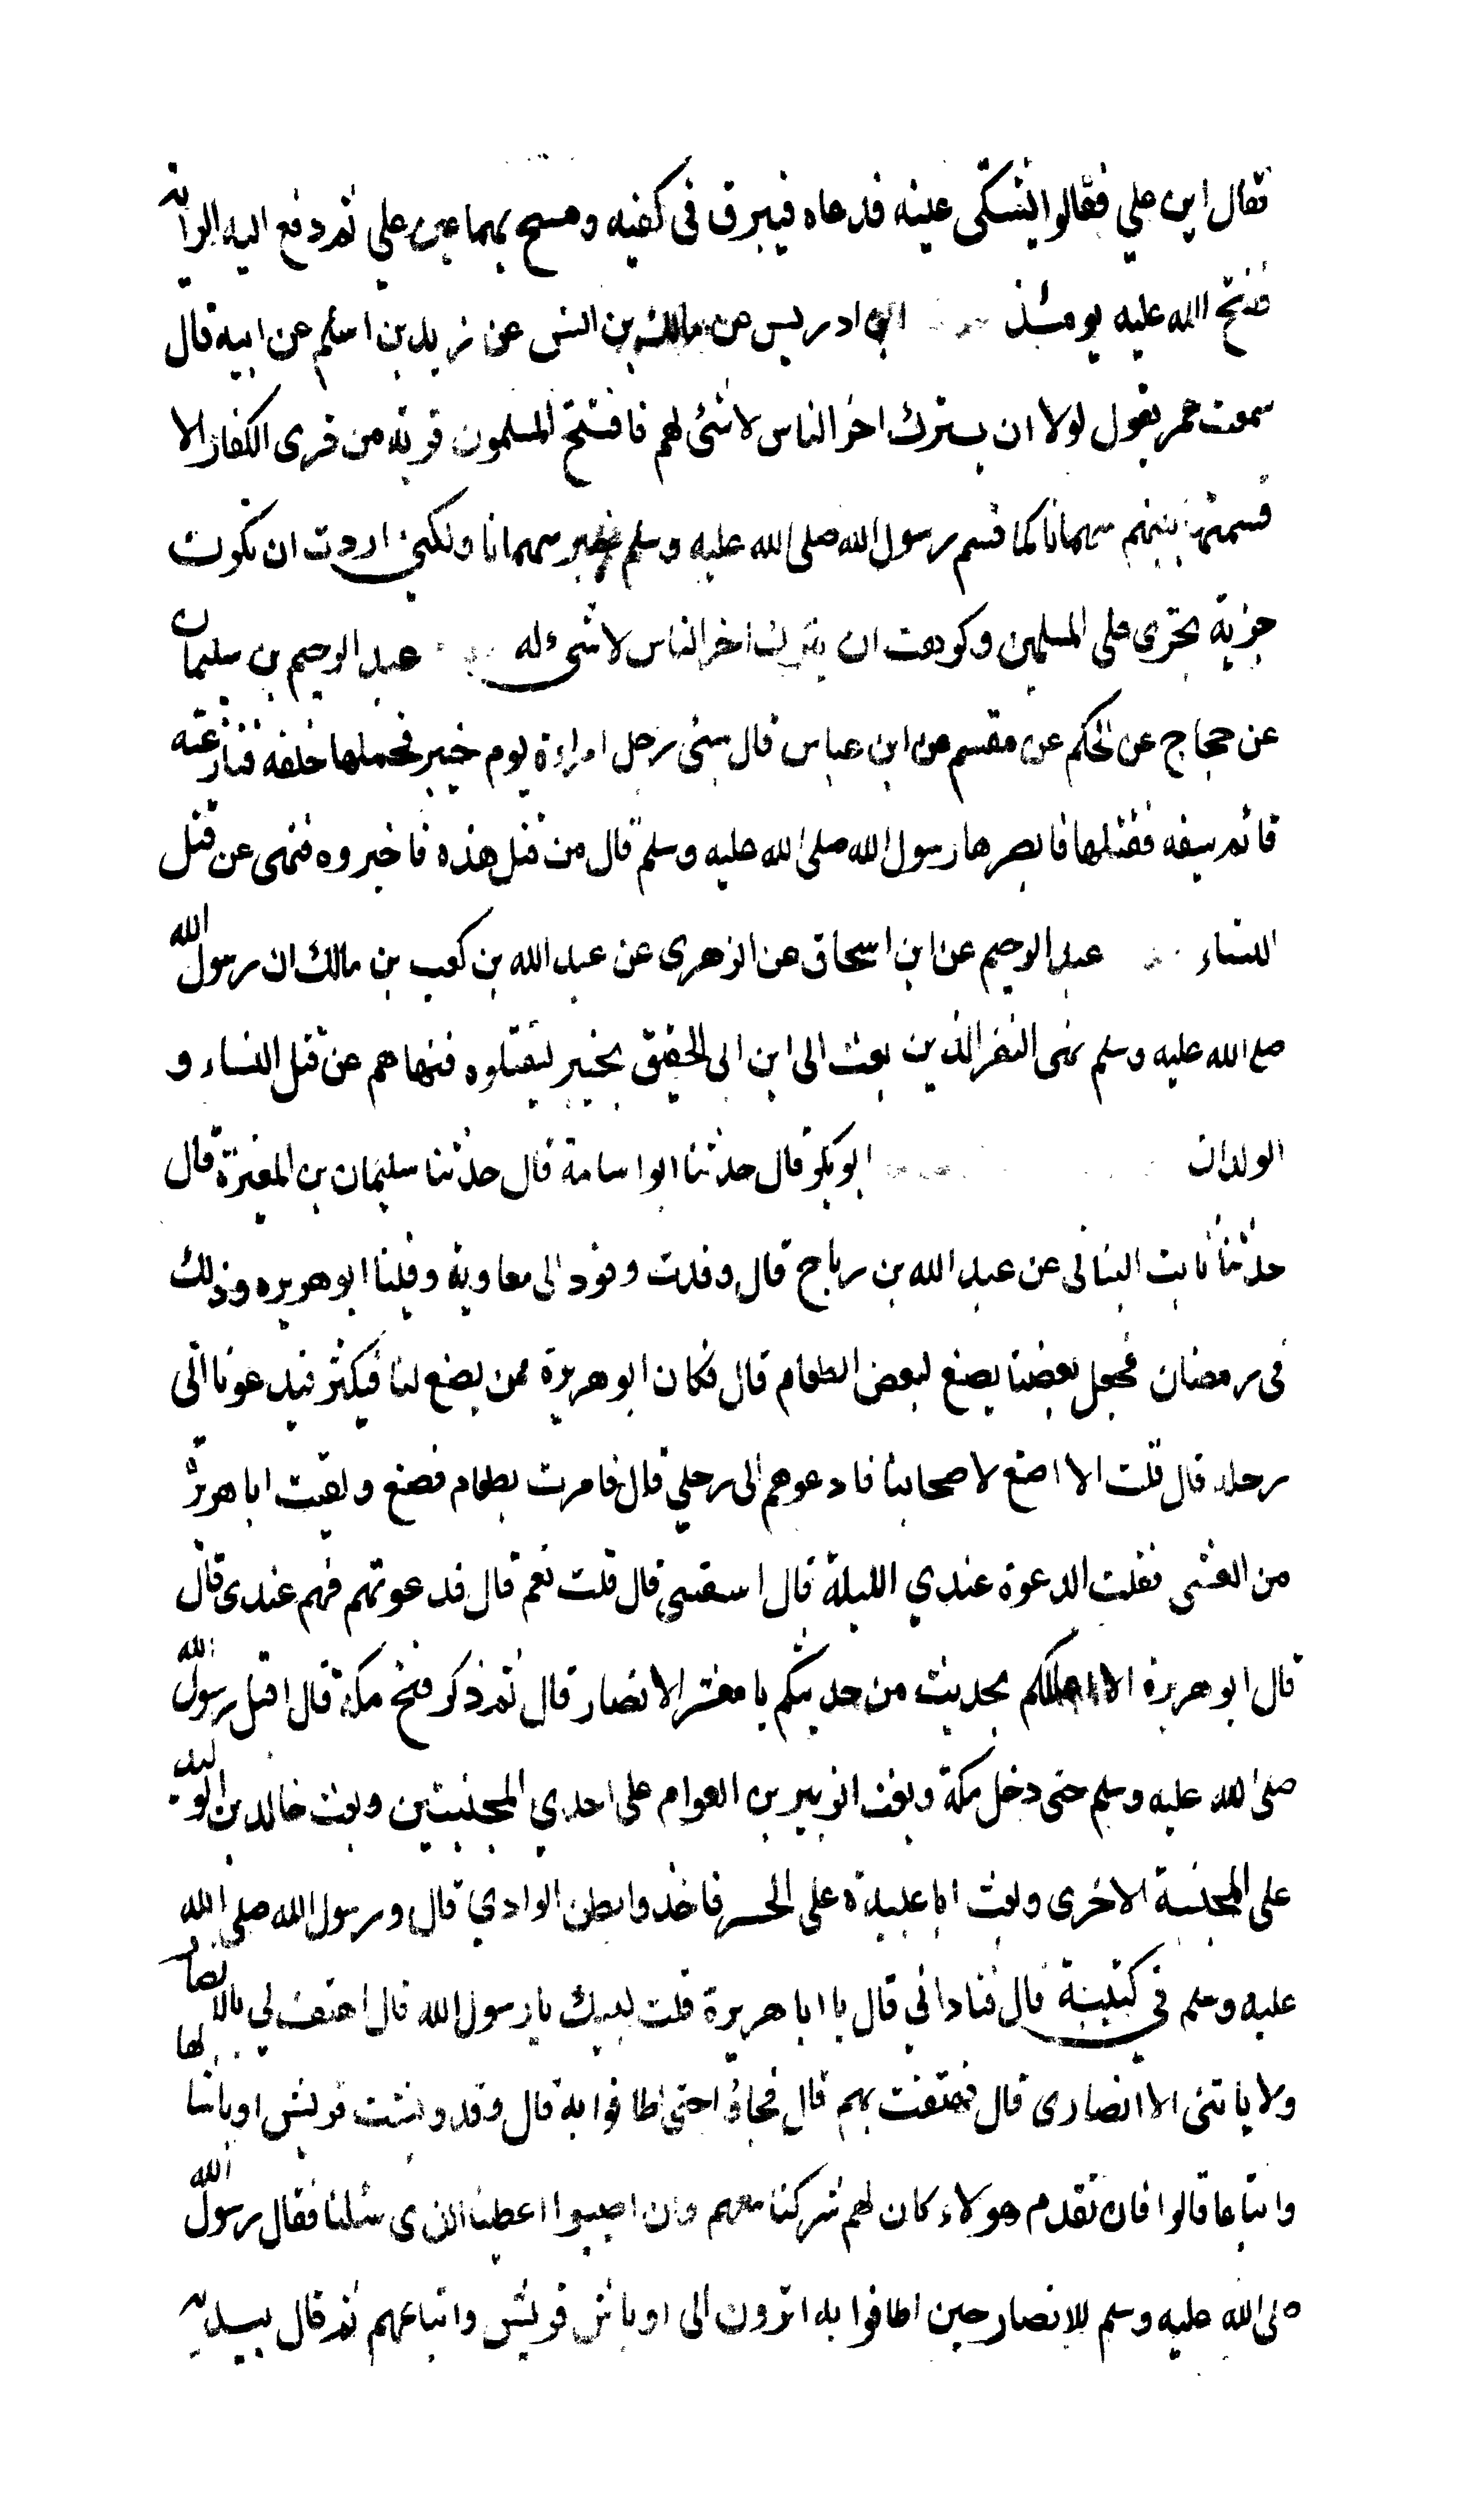 فقال اين علي فقالوا يشتكى عينه فدعاه فبزق فى كفيه ومسح بهما عين علي ثم دفع اليه الراية
ففتح الله عليه يومئذ ابن ادريس عن مالك بن انس عن زيد بن اسلم عن ابيه قال
سمعت عمر يقول لولا ان يترك اخر الناس لا شئ لهم ما افتتح المسلمون قرية من قرى الكفار الا
قسمتها بينهم سهمانا كما قسم رسول الله صلى الله عليه وسلم خيبر سهمانا ولكني اردت ان تكون
جزية تجرى على المسلمين وكرهت ان يترك اخر الناس لا شىء له عبد الرحيم بن سليمان
عن حجاج عن الحكم عن مقسم عن ابن عباس قال سبى رجل امراءة يوم خيبر فحملها خلفه فنازعته
قائم سيفه فقتلها فابصرها رسول الله صلى الله عليه وسلم قال من قتل هذه فاخبروه فنهى عن قتل
النساء عبد الرحيم عن ابن اسحاق عن الزهرى عن عبد الله بن كعب بن مالك ان رسول الله
صلى الله عليه وسلم نهى النفر الذين بعث الى ابن ابى الحقيق بخيبر ليقتلوه فنهاهم عن قتل النساء و
الولدان ابو بكر قال حدثنا ابو اسامة قال حدثنا سليمان بن المغيرة قال
حدثنا ثابت البنانى عن عبد الله بن رباح قال وفدت وفود الى معاوية وفينا ابو هريره وذلك
فى رمضان فجعل بعضنا يصنع لبعض الطعام قال فكان ابو هريرة ممن يصنع لنا فيكثر فيدعونا الى
رحله قال قلت الا اصنع لاصحابنا فادعوهم الى رحلي قال فامرت بطعام فصنع ولقيت ابا هريرة
من العشى فقلت الدعوة عندي الليلة قال اسبقتنى قال قلت نعم قال فدعوتهم فهم عندى قال
قال ابو هريرة الا اعللكم بحديث من حديثكم يا معشر الانصار قال ثم ذكر فتح مكة قال اقبل رسول الله
صلى الله عليه وسلم حتى دخل مكة وبعث الزبير بن العوام على احدي المجنبتين وبعث خالد بن الوليد
على المجنبة الاخرى وبعث ابا عبيدة على الحسر فاخذوا بطن الوادي قال ورسول الله صلى الله
عليه وسلم في كتيبة قال فناداني قال يا ابا هريرة قلت لبيك يا رسول الله قال اهتف لي بالانصار
ولا ياتنى الا انصارى قال فهتفت بهم قال فجاؤا حتى اطافوا به قال وقد وبشت قريش اوباشا لها
واتباعا قالوا فان تقدم هولاء كان لهم شركنا معهم وان اصيبوا اعطينا الذى سئلنا فقال رسول الله
صلى الله عليه وسلم للانصار حين اطافوا به اترون الى اوباش قريش واتباعهم ثم قال بيديه